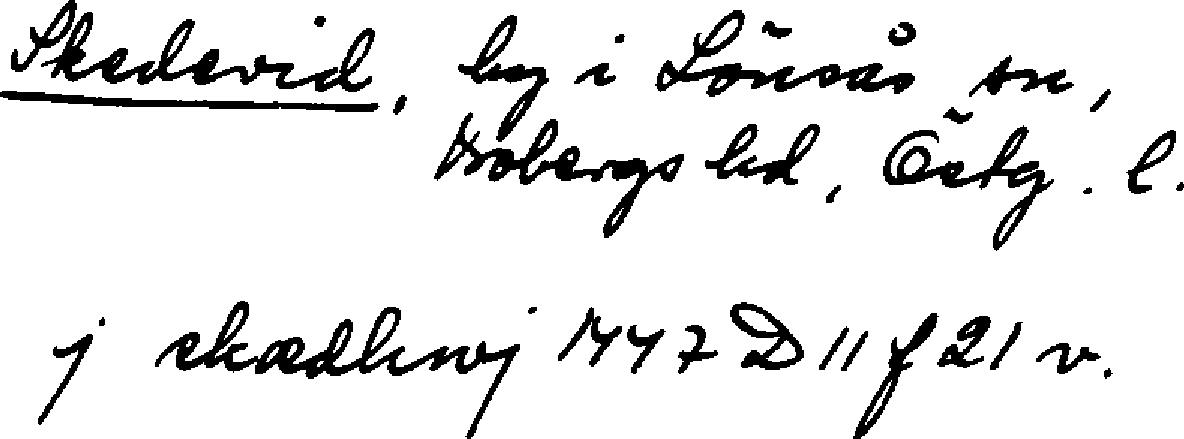 Skedevid, by i Lönsås sn,
Bobergs hd, Östg. l.
j skædhwj 1447 D 11 f 21 v.